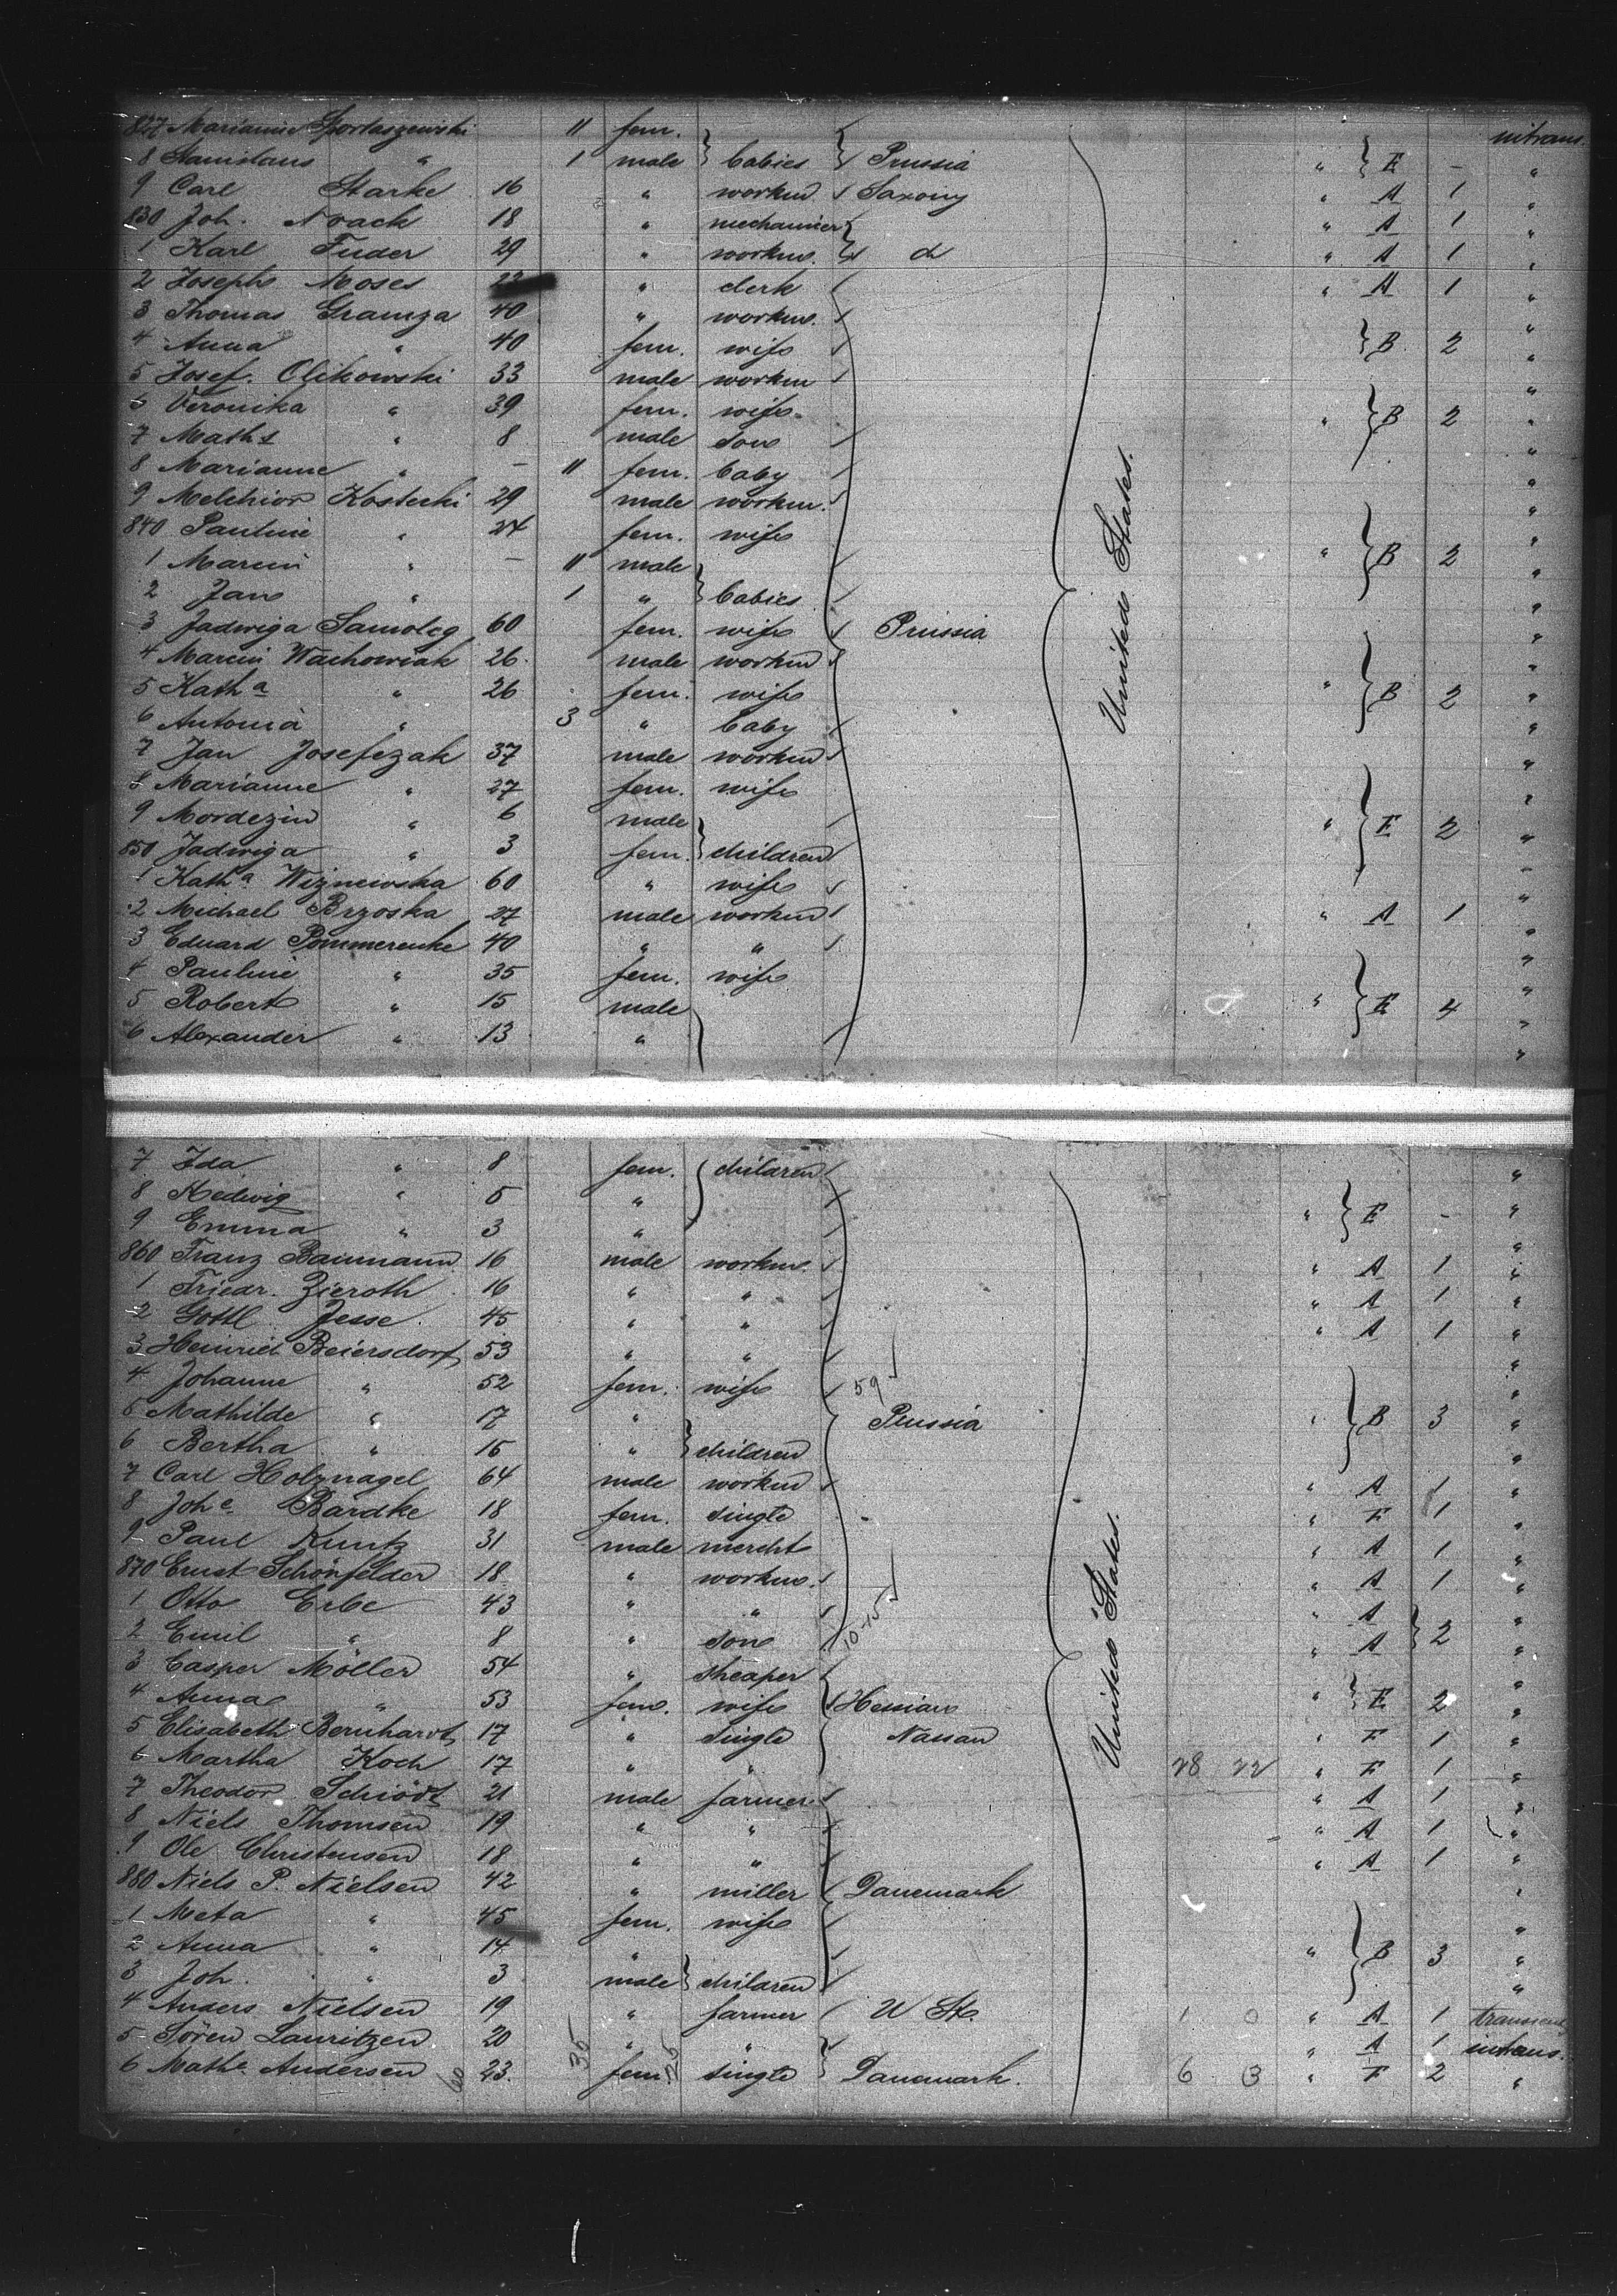 827 Marianne 11 fem. intrans.
8 Stanislaus " 1 male babies Prussia " E - "
9 Carl Starke 16 " workm Saxony " A 1 "
830 Joh. Noack 18 " mechanicer " A 1 "
1 Karl Fuder 29 " workm. do " A 1 "
2 Joseph Moses " clerk " A 1 "
3 Thomas Gramza 40 " workm. "
4 Anna " 40 fem. wife B 2 "
5 Josef. Olikowski 33 male workm "
6 Veronika " 39 fem. wife " B 2 "
7 Maths " 8 male son "
8 Marianne " - 11 fem. baby "
9 Melchior Kostecki 29 male workm. "
840 Pauline " 24 fem. wife "
1 Marcin " - 11 male " B 2 "
2 Jan " 1 " babies "
3 Jadwiga Samoleg 60 fem. wife Prussia "
4 Marcin Wachowiak 26 male workm "
5 Katha " 26 fem. wife " B 2 "
6 Antonia " 3 " baby "
7 Jan Josefczak 37 male workm "
8 Marianne " 27 fem. wife "
9 Mordezin " 6 male " E 2 "
850 Jadwiga " 3 fem. children "
1 Katha Wiznewska 60 " wife "
2 Michael Brzoska 27 male workm " A 1 "
3 Eduard Pommerenke 40 " " "
4 Pauline " 35 fem. wife "
5 Robert " 15 male " E 4 "
6 Alexander " 13 " "
United States.
7 Ida " 8 fem. children "
8 Hedwig " 5 " " E - "
9 Emma " 3 " "
860 Franz Baumann 16 male workm. " A 1 "
1 Friedr. Zieroth 16 " " " A 1 "
2 Gottl. Jesse 45 " " " A 1 "
3 Heinrich Beiersdorf 53 " " "
4 Johanne " 52 fem. wife 59 "
5 Mathilde " 17 " Prussia " B 3 "
6 Bertha " 15 " children "
7 Carl Holznagel 64 male workm " A 1 "
8 Johe. Bardke 18 fem. single " F 1 "
9 Paul Kuntz 31 male mercht " A 1 "
870 Ernst Schönfelder 18 " workm. " A 1 "
1 Otto Erbe 43 " " " A 2 "
2 Emil " 8 " son 10-15 " A "
3 Casper Möller 54 " sheaper "
4 Anna " 53 fem. wife Hessian " E 2 "
5 Elisabeth Bernhardt 17 " single Nassau " F 1 "
6 Martha Koch 17 " " 28 22 " F 1 "
7 Theodor Schiödt 21 male farmer " A 1 "
8 Niels Thomsen 19 " " " A 1 "
9 Ole Christensen 18 " " " A 1 "
880 Niels P. Nielsen 42 " miller Danemark "
1 Meta " 45 fem. wife "
2 Anna " 14 " " B 3 "
3 Joh. " 3 male children "
4 Anders Nielsen 19 " farmer U St. 1 0 " A 1
5 Sören Lauritzen 20 " " " A 1 intrans.
6 Mathe. Andersen 23. fem. single Danemark. 6 3 " F 2 "
United States.